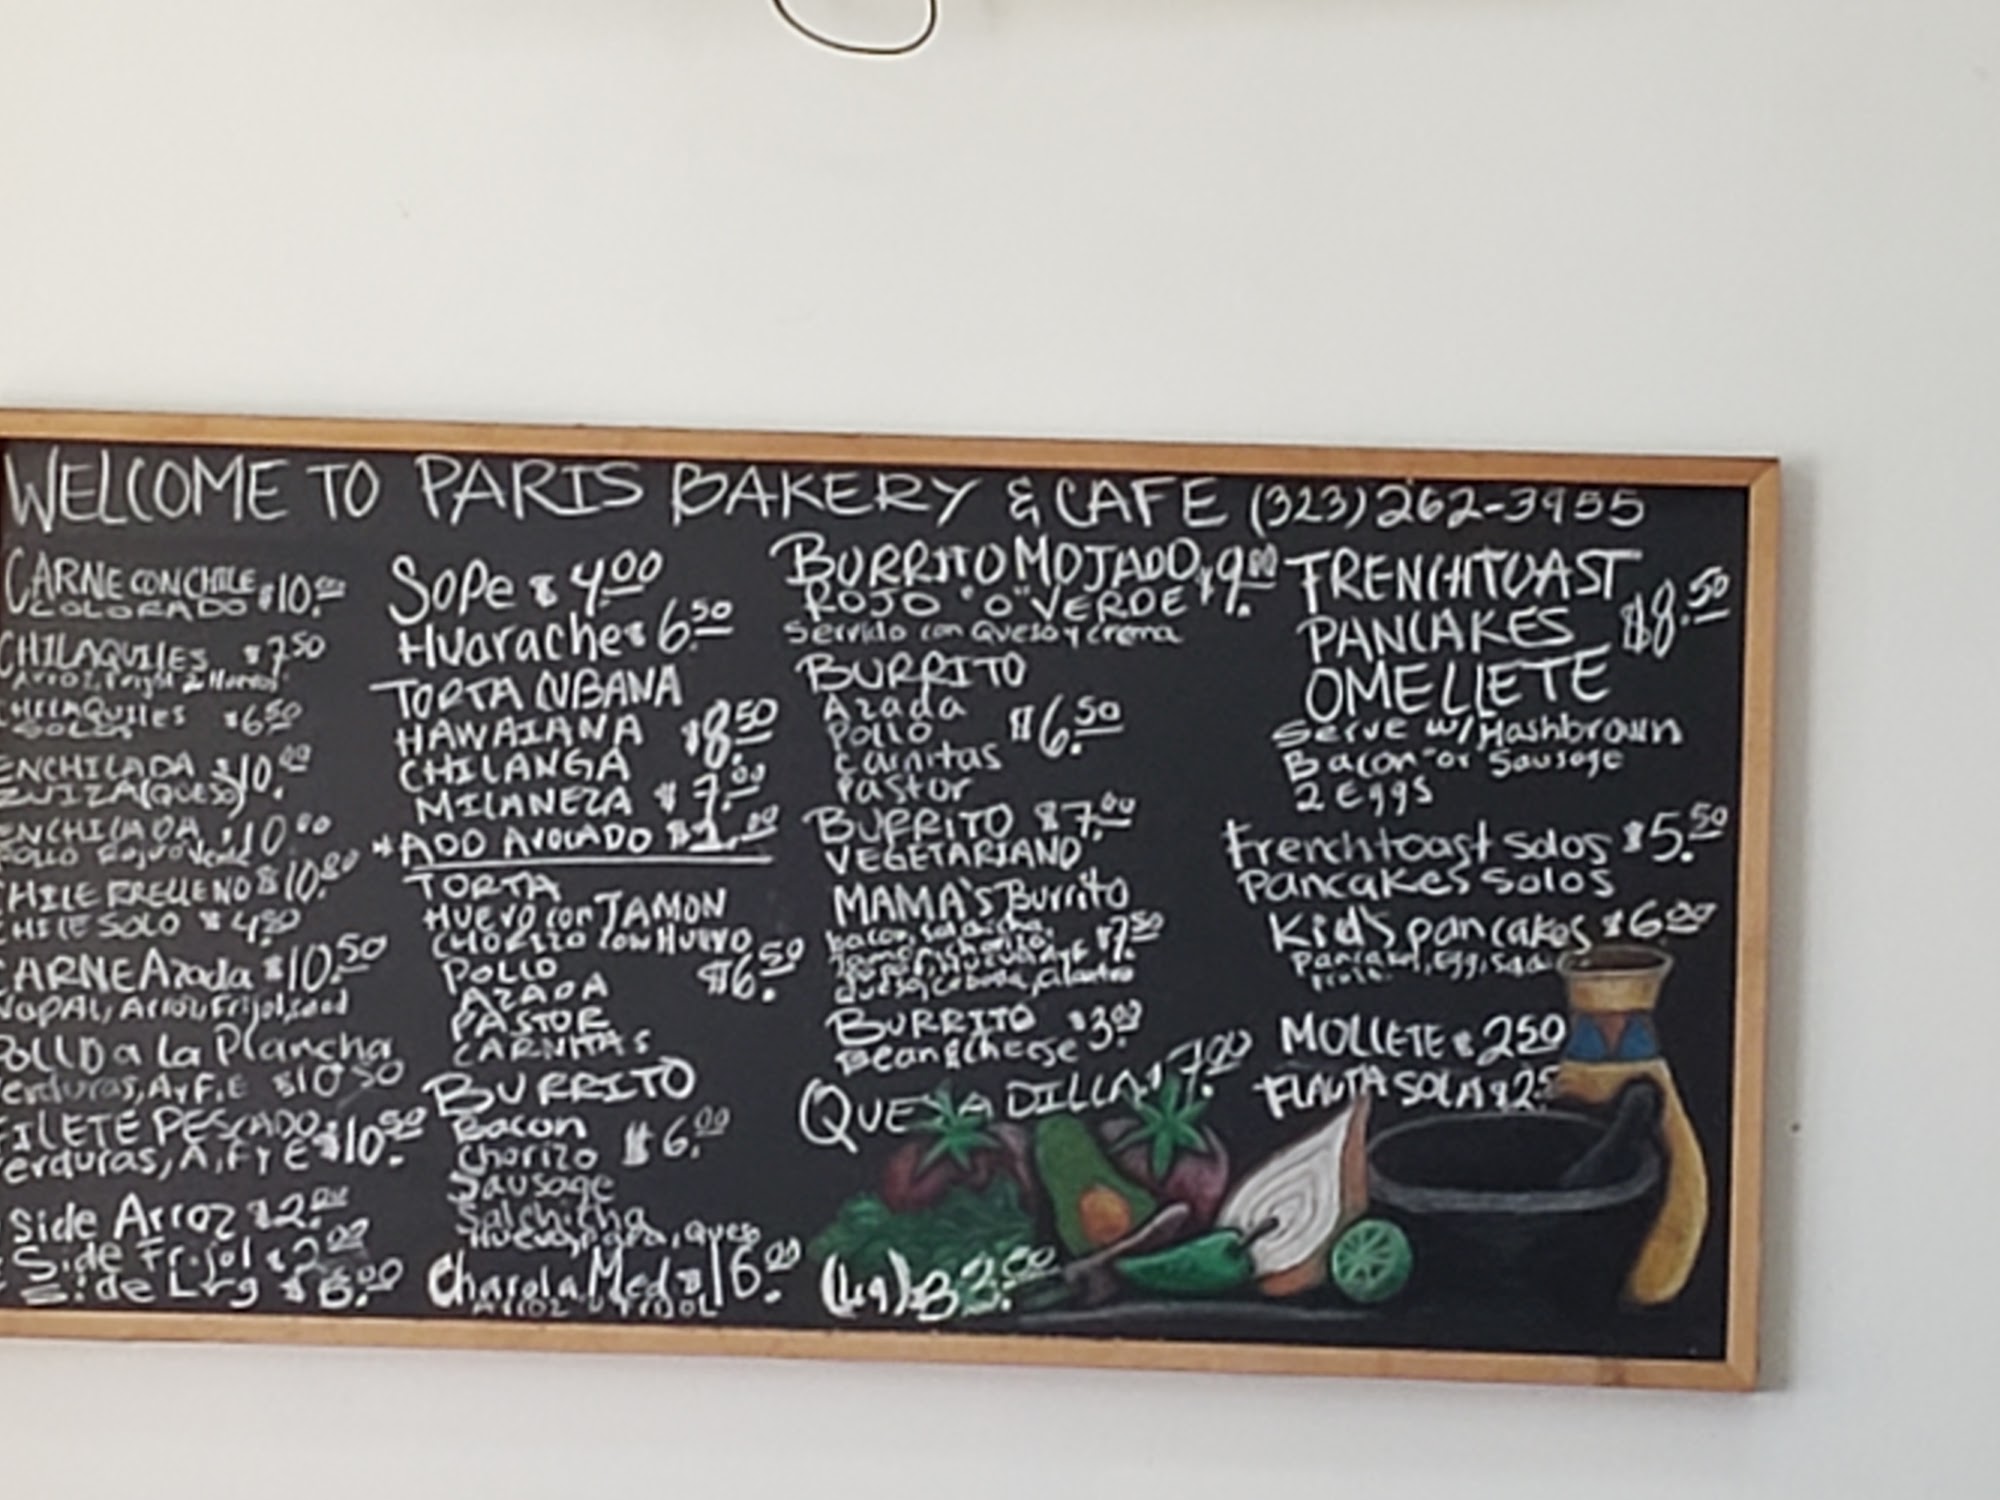 WELCOME TO PARIS BAKERY & CAFE (323) 262-3955
CARNE CON CHILE $10.00
COLORADO
CHILAQUILES $7.50
Arroz, Frijol 2 Huevos
CHILAQUILES $6.50
SOLOS
ENCHILADA $10.00
ZUIZA (QUESO)
ENCHILADA $10.00
POLLO Rojo o Verde
CHILE RRELLENO $10.00
CHILE SOLO $4.50
CARNE Azada $10.50
NOPAL, Arroz, Frijol,
POLLO a La Plancha
Verduras, A y F, E $10.50
FILETE PESCADO $10.50
Verduras, A, F Y E
Side Arroz $2.00
Side Frijol $2.00
Side Lrg $
Sope $4.00
Huarache $6.50
TORTA CUBANA
HAWAIANA $8.50
CHILANGA
MILANEZA $7.00
*ADD AVOCADO $1.00
TORTA
HUEVO con JAMON
CHORIZO con HUEVO
POLLO $6.50
AZADA
PASTOR
CARNITAS
BURRITO
Bacon
Chorizo $6.00
Sausage
Salchicha
Huevo, papa, queso
Charola Med $16.00
Arroz y FRIJOL
BURRITO MOJADO $9.00
ROJO "O" VERDE
Servido con Queso y crema
BURRITO
Azada
Pollo $6.50
Carnitas
Pastor
BURRITO $7.00
VEGETARIANO
MAMA'S Burrito
bacon, salchicha,
Jamon, chorizo, $7.50
queso, cebolla, cilantro
BURRITO $3.00
Bean & Cheese
QUEZADILLA $7.00
(Lrg)
FRENCHTOAST
PANCAKES $8.50
OMELLETE
Serve w/ Hashbrown
Bacon or Sausage
2 Eggs
Frenchtoast Solos $5.50
Pancakes Solos
Kid's pancakes $6.00
Pancake, Egg,
MOLLETE $2.50
FLAUTA SOLA